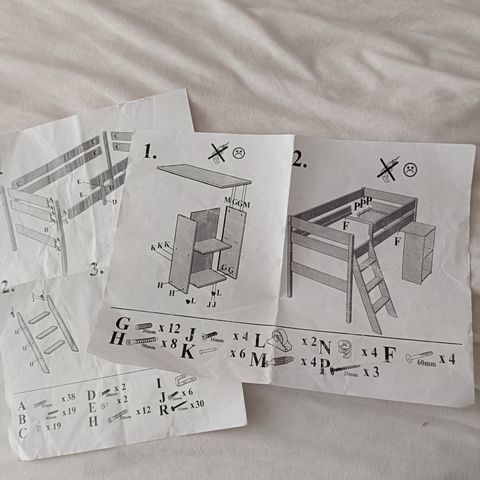 1.
2.
C
C
C
C
E
E
A
D
M GG M
K K K
G G
H
H
L
L
J J
P P P
F
F
2.
3.
H
H
G x 12 J x 4 L x 2 N x 4 F 60mm x 4
H x 8 K x 6 M x 4 P 35mm x 3
A x 38 D x 2 I
B x 19 E x 2 J x 6
C x 19 H x 12 R x 30